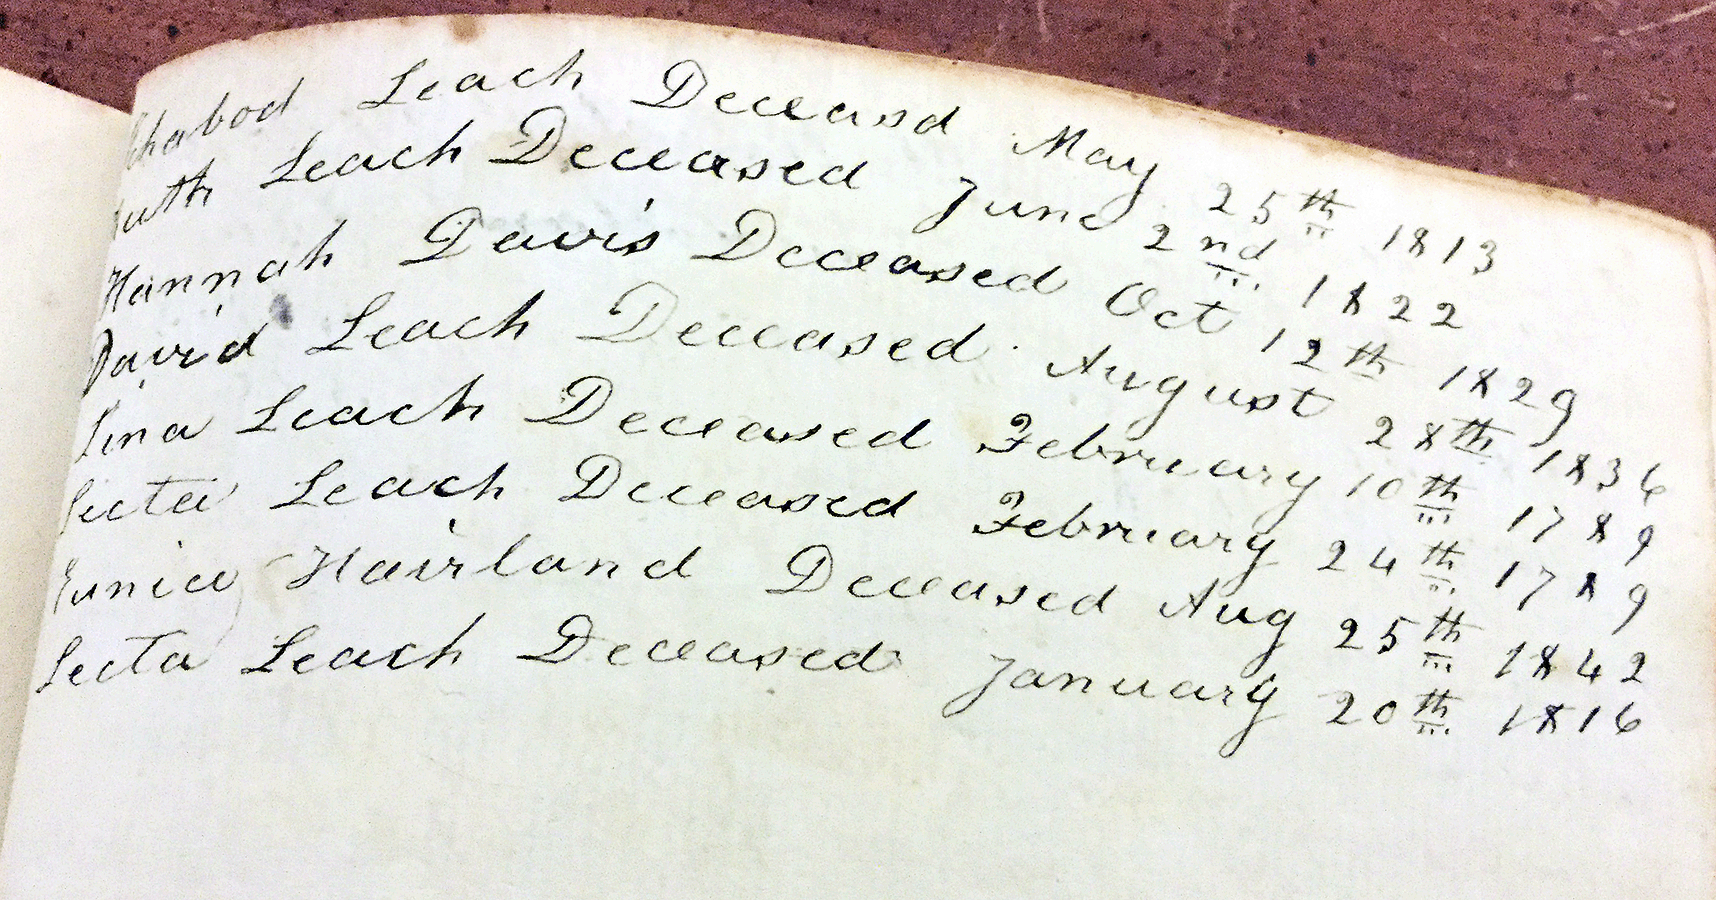 Ichabod Leach Deceasd May 25th 1813
Ruth Leach Deceased June 2nd 1822
Hannah Davis Deceased Oct 12th 1829
David Leach Deceased August 28th 1836
Leach Deceased February 10th 1789
Lecta Leach Deceased February 24th 1789
Eunice Deceased Aug 25th 1842
Lecta Leach Deceased January 20th 1816